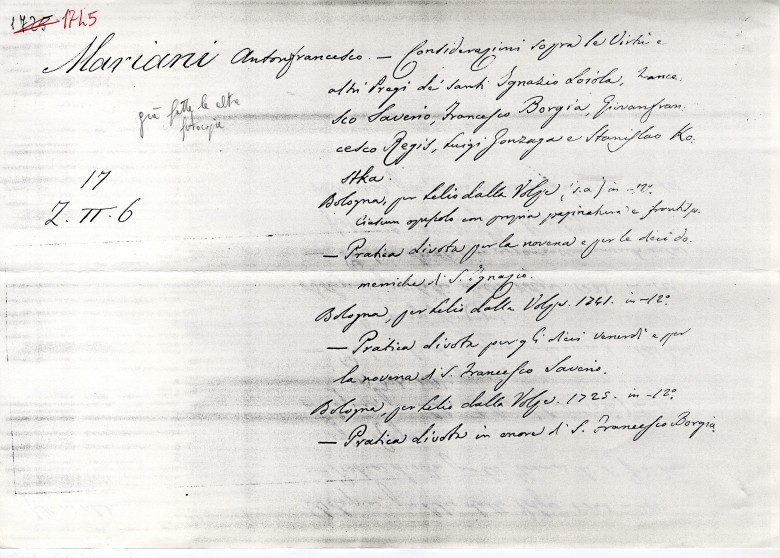 1725 1745
Mariani Antonfrancesco. — Considerazioni sopra le Virtù e
altri Pregi de' Santi Ignazio Loiola, France-
sco Saverio, Francesco Borgia, Giovanfran-
cesco Regis, Luigi Gonzaga e Stanislao Ko-
stka.
già fatte le altre
fotocopie
17
Z. II. 6
Bologna, per Lelio dalla Volpe, (s.a.) in -12°.
Ciascun opuscolo con propria paginatura e frontisp.
— Pratica divota per la novena e per le dieci do-
meniche di S. Ignazio.
Bologna, per Lelio dalla Volpe. 1741. in -12°.
— Pratica divota per gli dieci venerdì e per
la novena di S. Francesco Saverio.
Bologna, per Lelio dalla Volpe. 1725. in -12°.
— Pratica divota in onore di S. Francesco Borgia.